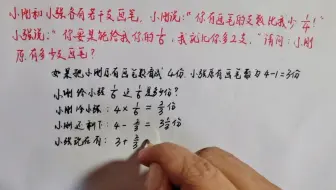 小刚和小强各有若干支画笔，小刚说："你有画笔的支数比我少1/4！"
小强说："你要是能给我你的1/6，我就比你多2支。"请问：小刚
原有多少支画笔？
如果把小刚原有画笔数看成4份，小强原有画笔数为4-1=3份
小刚给小强1/6 这1/6是多少份？
小刚给小强：4×1/6=2/3份
小刚还剩下：4-2/3=3 1/3份
小强现在有：3+2/3